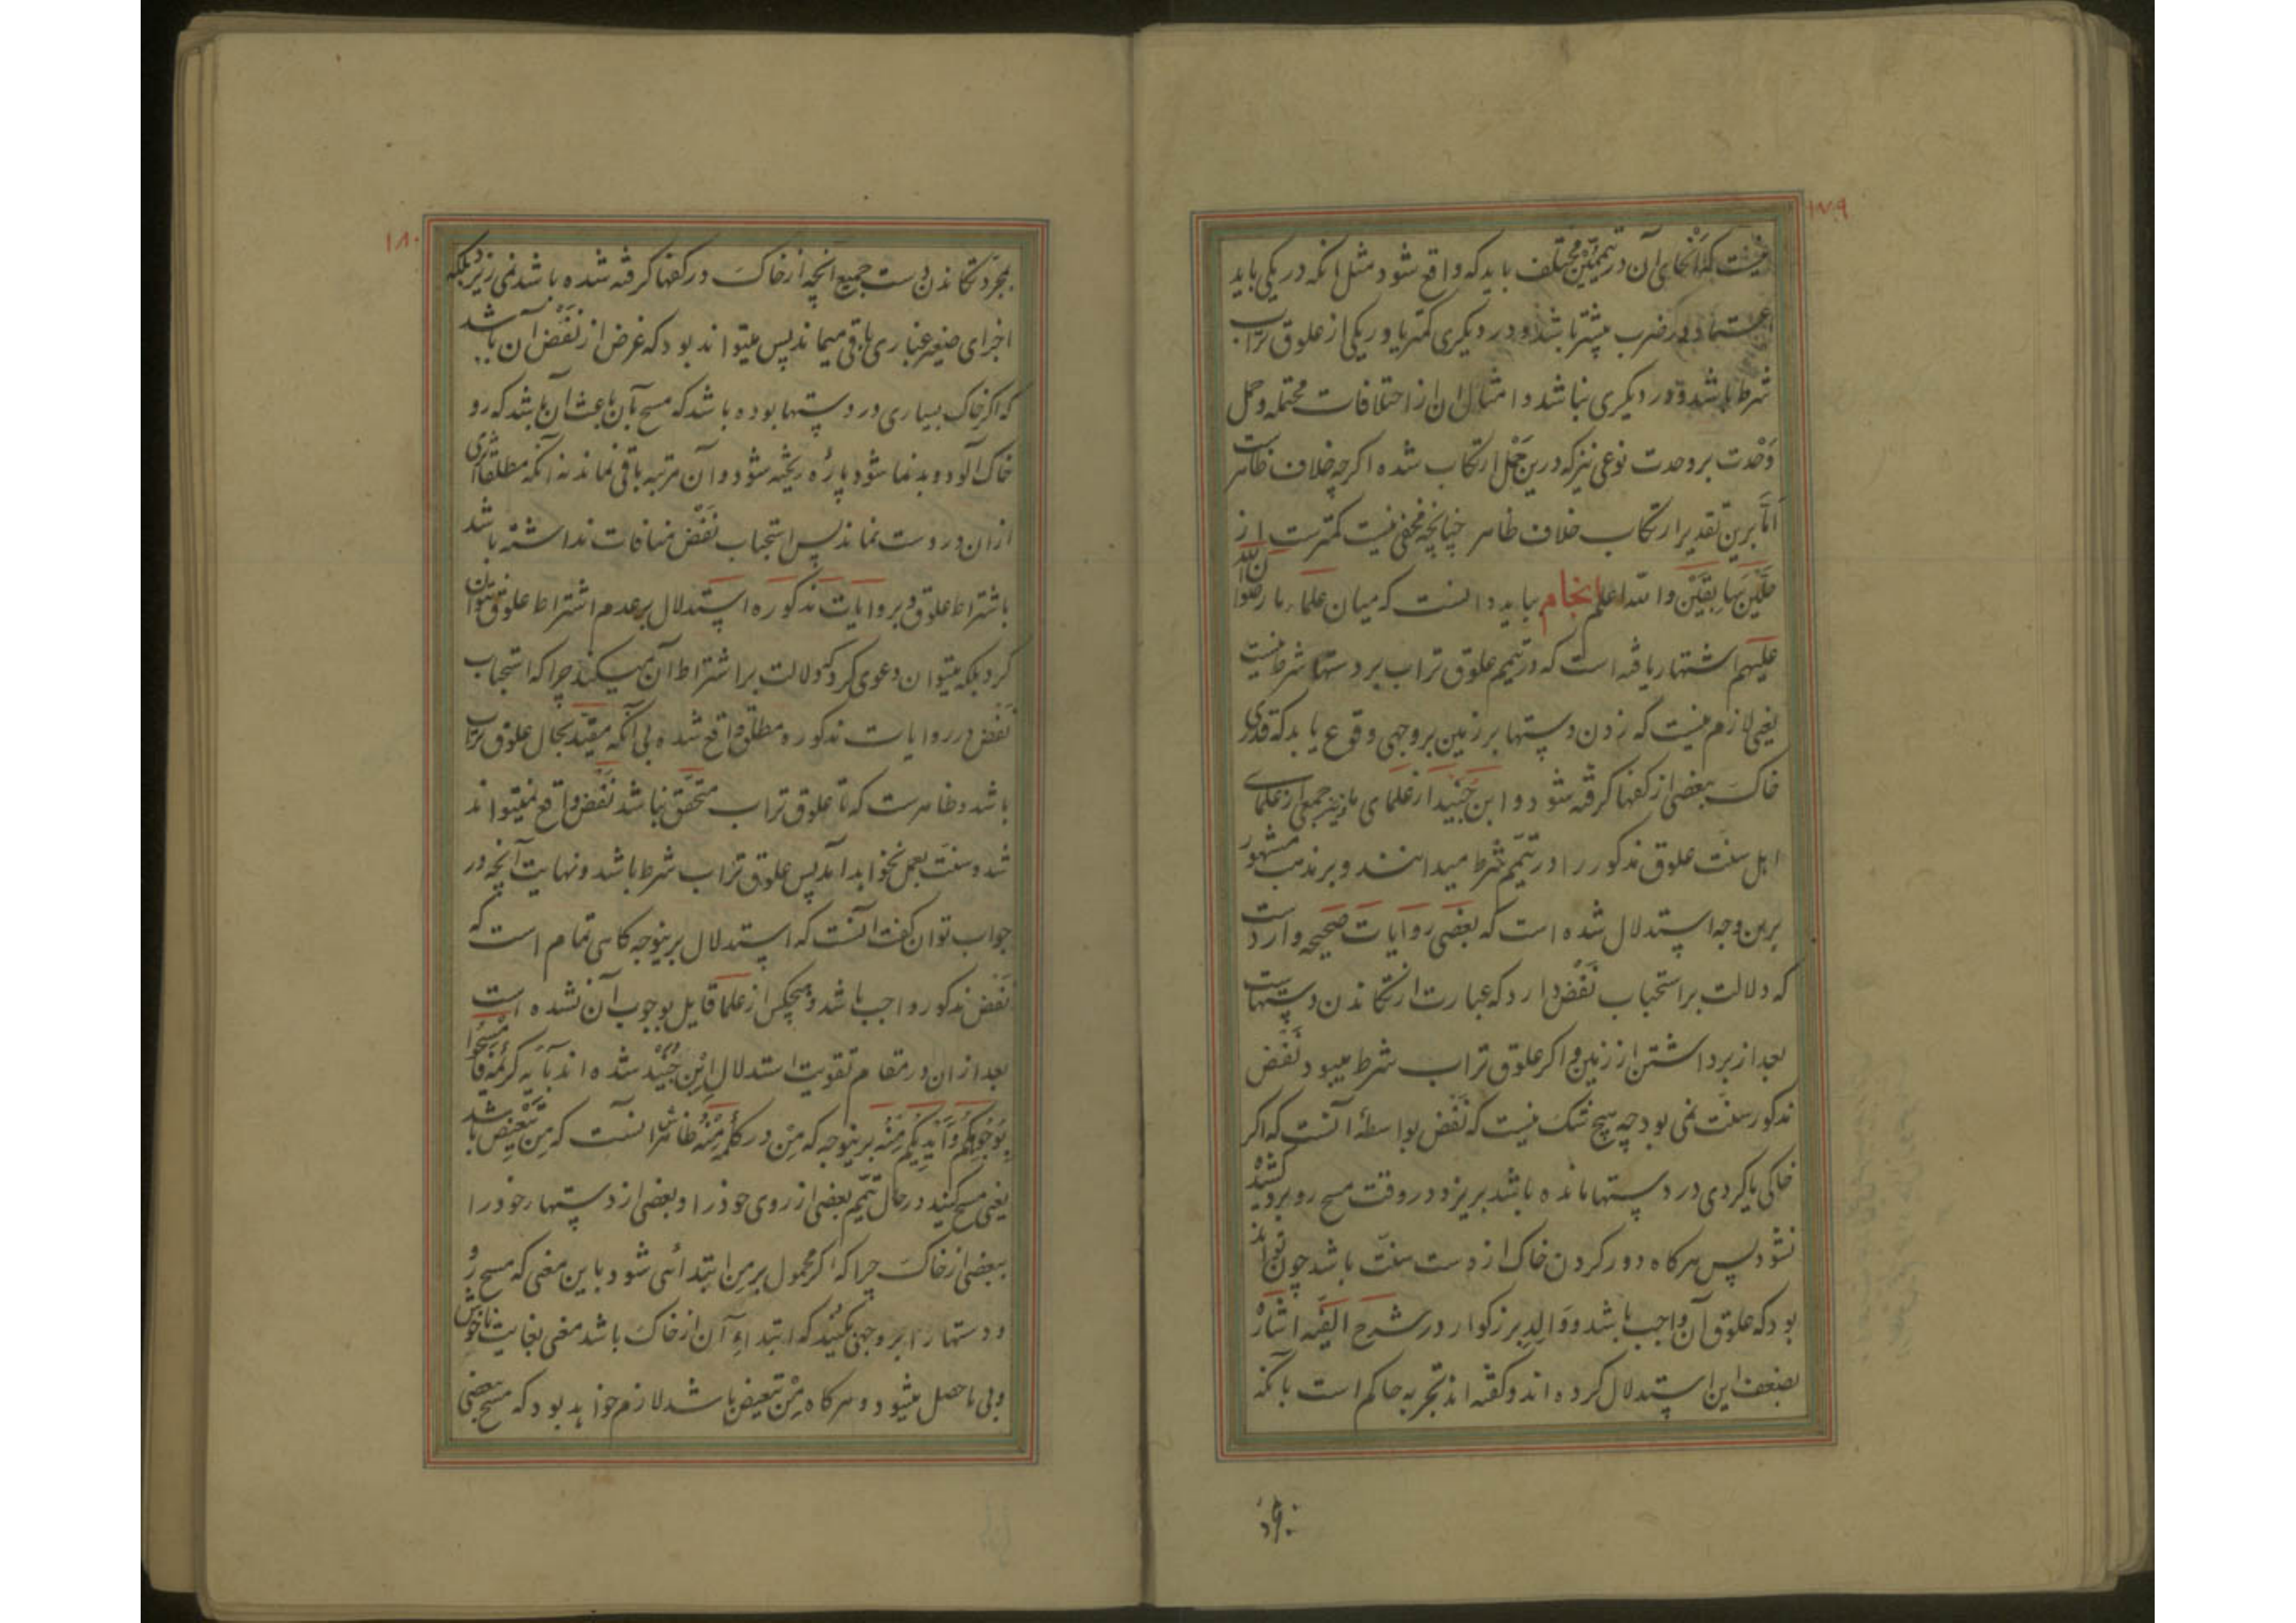 ١٧٩
نیست که انحای آن در تیمّمین مختلف باید که واقع شود مثل انکه در یکی باید
اعتماد در ضرب بیشتر باشد و در دیکری کمتر یا در یکی از علوق تراب
شرط باشد و در دیکری نباشد و امثال ان از اختلافات محتمله و حمل
وَحْدت بر وحدت نوعی نیز که درین حمل ارتکاب شده اکرچه خلاف ظاهرست
امّا برین تقدیر ارتکاب خلاف ظاهر چنانچه مخفی نیست کمترست از
والله اعلم انجام بباید دانست که میان علماء ما رضوان الله
علیهم اشتهار یافته است که در تیمم علوق تراب بر دستها شرط نیست
یعنی لازم نیست که زدن دستها بر زمین بر وجهی وقوع یابد که قدری
خاک ببعضی از کفها کرفته شود و ابن جُنَید از علمای ما و نیز جمعی از علمای
اهل سنّت علوق مذکور را در تیمّم شرط میدانند و بر مذهب مشهور
برین وجه استدلال شده است که بعضی روایات صحیحه وارد است
که دلالت بر استحباب نَفْض دارد که عبارت از تکاندن دستهاست
بعد از برداشتن از زمین و اکر علوق تراب شرط میبود نَفْض
مذکور سنّت نمی بود چه هیچ شک نیست که نَفْض بواسطهٔ آنست که اکر
خاکی یا کردی در دستها مانده باشد بریزد و در وقت مسح رو بر رو کشیده
نشود پس هرکاه دور کردن خاک از دست سنّت باشد چون تواند
بود که علوق آن واجب باشد و والد بزرکوار در شرح الفیّه اشاره
بضعف این استدلال کرده اند و کفته اند تجربه حاکم است بآنکه
بمجرّد
١٨٠
بمجرّد تکاندن دست جمیع آنچه از خاک در کفها کرفته شده باشد نمی ریزد بلکه
اجزای صغیر غباری باقی میماند پس میتواند بود که غرض از نَفْض آن باشد
که اکر خاک بسیاری در دستها بوده باشد که مسح بآن باعث ان باشد که رو
خاک آلود و بدنما شود پارهٔ ریخته شود و آن مرتبه باقی نماند نه آنکه مطلقا اثری
از ان در دست نماند پس استحباب نَفْض منافات نداشته باشد
باشتراط علوق و بر روایات مذکوره استدلال بر عدم اشتراط علوق نتوان
کرد بلکه میتوان دعوی کرد که دلالت بر اشتراط آن میکند چرا که استحباب
نَفْض در روایات مذکوره مطلق واقع شده بی آنکه مقیّد بحال علوق تراب
باشد و ظاهرست که تا علوق تراب متحقّق نباشد نَفْض واقع نمیتواند
شد و سنّت بعمل نخواهد آمد پس علوق تراب شرط باشد و نهایت آنچه در
جواب توان کفت آنست که استدلال برینوجه کاهی تمام است که
نَفْض مذکور واجب باشد و هیچکس از علما قایل بوجوب آن نشده است
بعد از ان در مقام تقویت استدلال اِبْن جُنَیْد شده اند بآیه کریمهٔ فَامْسَحُوا
بِوُجُوهِکُم وَاَیْدِیکُم مِنْهُ برینوجه که مِن در کلمهٔ مِنْهُ ظاهرش آنست که مِن تَبْعیض باشد
یعنی مسح کنید در حال تیمّم بعضی از روی خود را و بعضی از دستهاء خود را
ببعضی از خاک چرا که اکر محمول بر مِن ابتدائی شود باین معنی که مسح رو
و دستها را بر وجهی بکنید که ابتداءِ آن از خاک باشد معنی بغایت ناخوش
و بی ماحصل میشود و هرکاه مِنْ تبعیض باشد لازم خواهد بود که مسح ببعضی